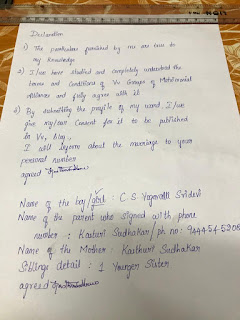 Declaration
1) The particulars furnished by me are true to
my knowledge
2) I/we have studied and completely understood the
terms and Conditions of Vu Groups of Matrimonial
alliances and fully agree with it
3) By submitting the profile of my ward, I/we
give my/our Consent for it to be published
in Vu, blog.
I will inform about the marriage to your
personal number
agreed
Name of the boy/girl : C S Yogavalli Sridevi
Name of the parent who signed with phone
number : Kasturi Sudhakar, ph no: 9444-54-5208
Name of the Mother : Kasthuri Sudhakar
Siblings detail : 1 Younger Sister
agreed